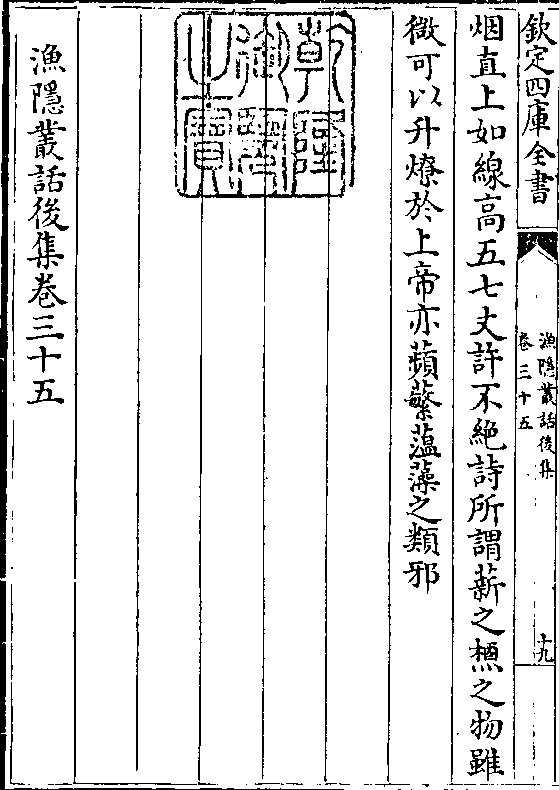 欽定四庫全書
漁隱叢話後集
卷三十五
十九
烟直上如線高五七丈許不絶詩所謂薪之槱之物雖
微可以升燎於上帝亦蘋蘩薀藻之類邪
乾隆
御覽
之寶
漁隱叢話後集卷三十五